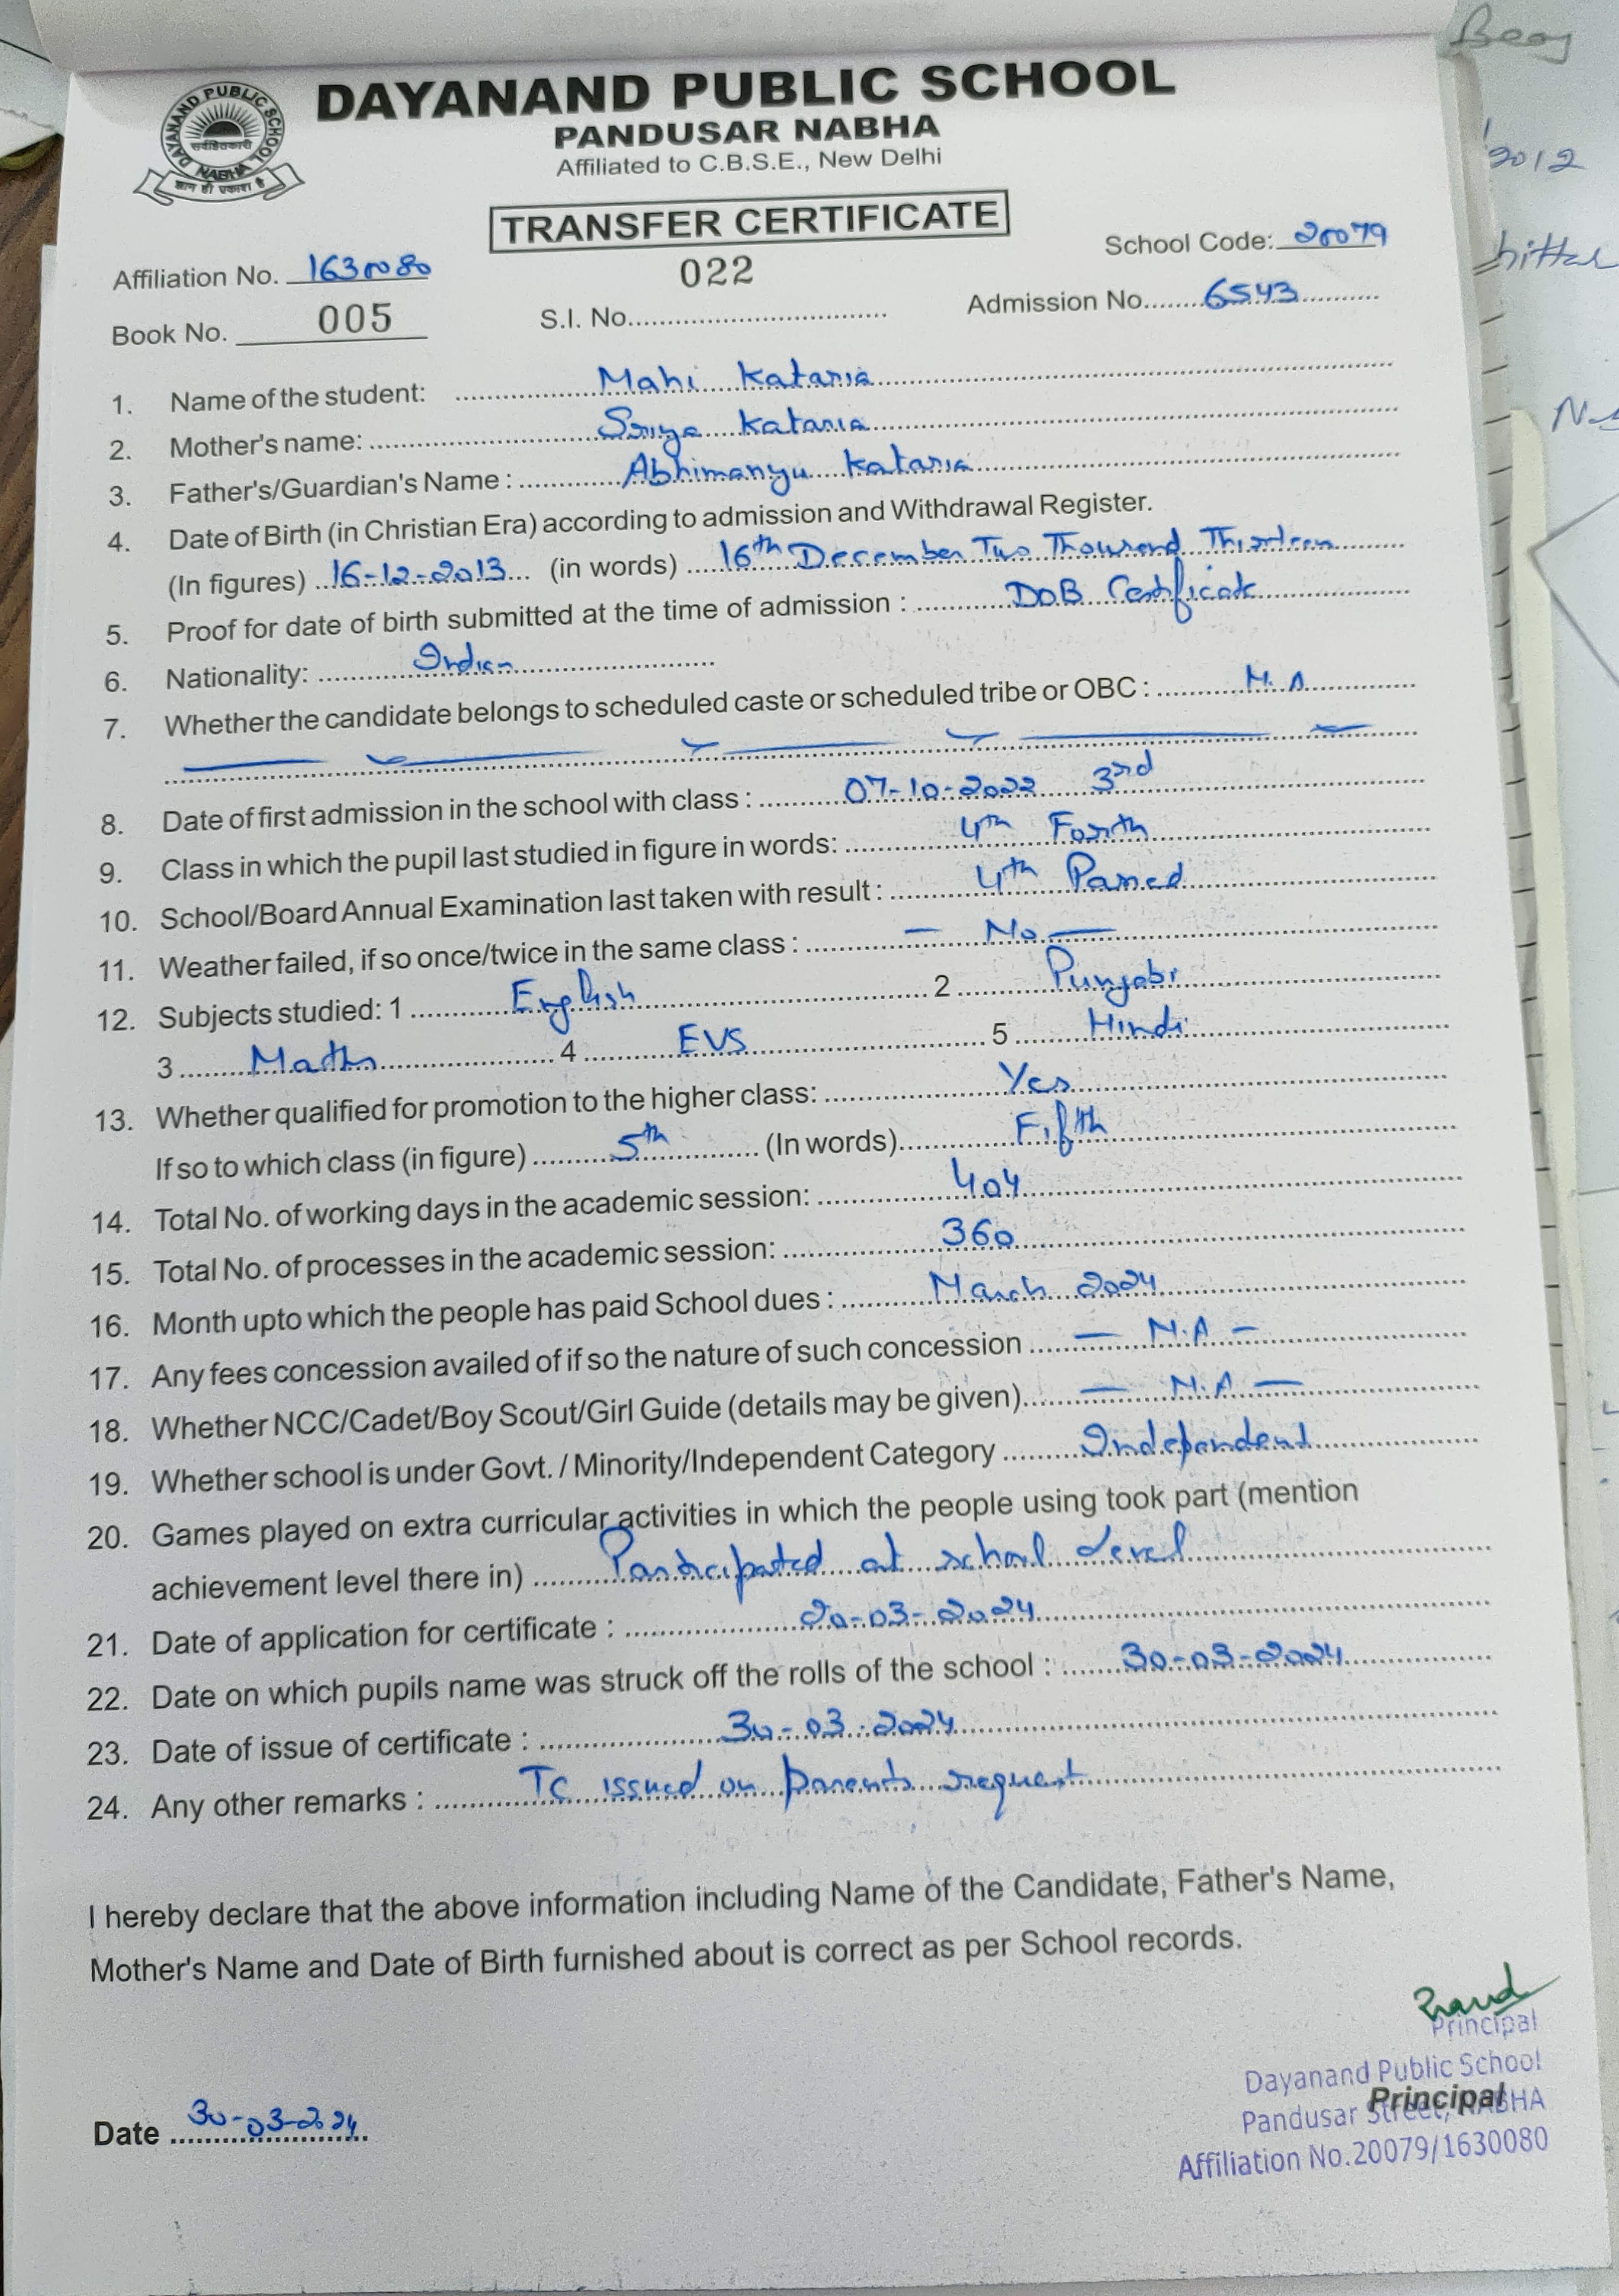 DAYANAND PUBLIC SCHOOL
PANDUSAR NABHA
Affiliated to C.B.S.E., New Delhi
DAYANAND PUBLIC SCHOOL
सर्वहितकारी
NABHA
ज्ञान ही प्रकाश है
TRANSFER CERTIFICATE
Affiliation No. 1630080 022 School Code: 20079
Book No. 005 S.I. No. Admission No. 6543
1. Name of the student: Mahi Kataria
2. Mother's name: Kataria
3. Father's/Guardian's Name : Abhimanyu Kataria
4. Date of Birth (in Christian Era) according to admission and Withdrawal Register.
(In figures) 16-12-2013 (in words) 16th December Two Thousand Thirteen
5. Proof for date of birth submitted at the time of admission : DOB Certificate
6. Nationality: Indian
7. Whether the candidate belongs to scheduled caste or scheduled tribe or OBC : N.A
8. Date of first admission in the school with class : 07-10-2022 3rd
9. Class in which the pupil last studied in figure in words: 4th Forth
10. School/Board Annual Examination last taken with result : 4th Passed
11. Weather failed, if so once/twice in the same class : — No —
12. Subjects studied: 1 English 2 Punjabi
3 Maths 4 EVS 5 Hindi
13. Whether qualified for promotion to the higher class: Yes
If so to which class (in figure) 5th (In words) Fifth
14. Total No. of working days in the academic session: 404
15. Total No. of processes in the academic session: 360
16. Month upto which the people has paid School dues : March 2024
17. Any fees concession availed of if so the nature of such concession — N.A —
18. Whether NCC/Cadet/Boy Scout/Girl Guide (details may be given) — N.A —
19. Whether school is under Govt. / Minority/Independent Category Independent
20. Games played on extra curricular activities in which the people using took part (mention
achievement level there in) Participated at school level
21. Date of application for certificate : 20-03-2024
22. Date on which pupils name was struck off the rolls of the school : 30-03-2024
23. Date of issue of certificate : 30-03-2024
24. Any other remarks : TC issued on parents request
I hereby declare that the above information including Name of the Candidate, Father's Name,
Mother's Name and Date of Birth furnished about is correct as per School records.
Principal
Dayanand Public School
Principal
Pandusar Street, NABHA
Affiliation No.20079/1630080
Date 30-03-2024
2012